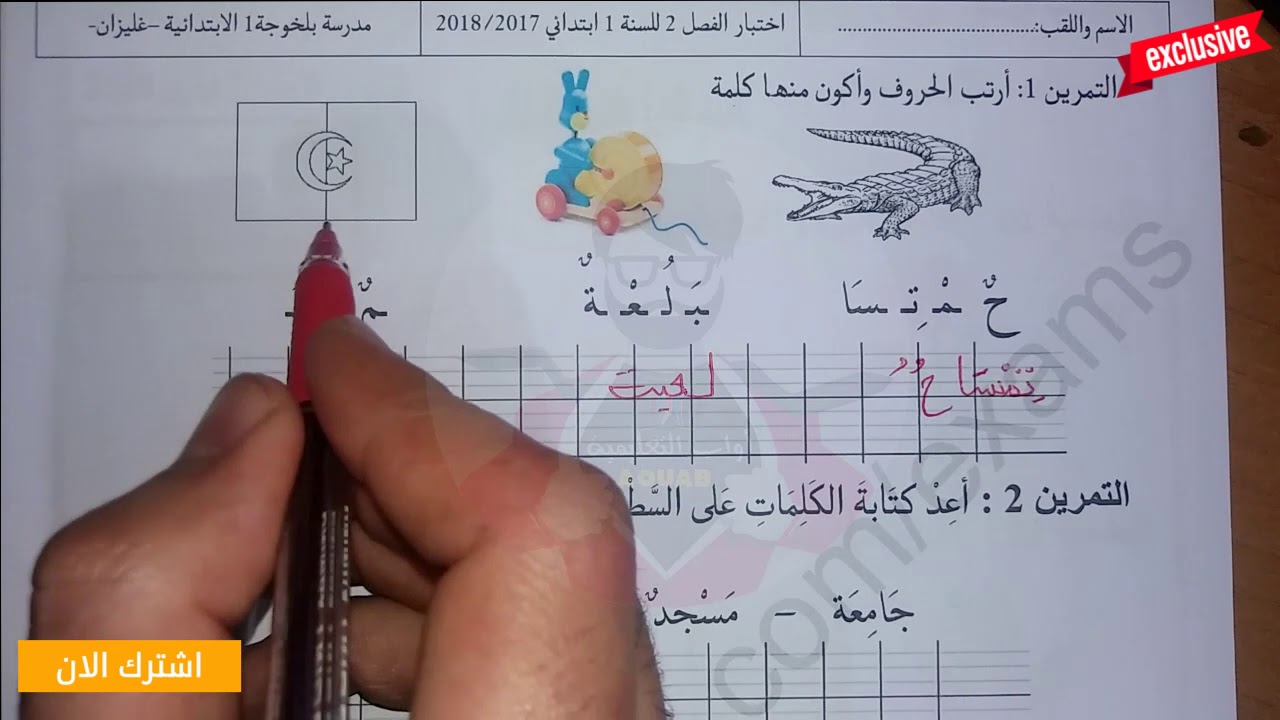 الاسم واللقب:........................................ اختبار الفصل 2 للسنة 1 ابتدائي 2018/2017 مدرسة بلخوجة1 الابتدائية –غليزان-
exclusive
التمرين 1: أرتب الحروف وأكون منها كلمة
حٌ ـمْـ تِـ سَا بَـ لُـ ـعْـ ـةٌ ـمٌ
تِمْسَاحٌ لـعبت
التمرين 2 : أعِدْ كتَابةَ الكَلِمَاتِ عَلى السَّطْ
جَامِعَة – مَسْجدٌ
com/exams
AOUAB
اشترك الان